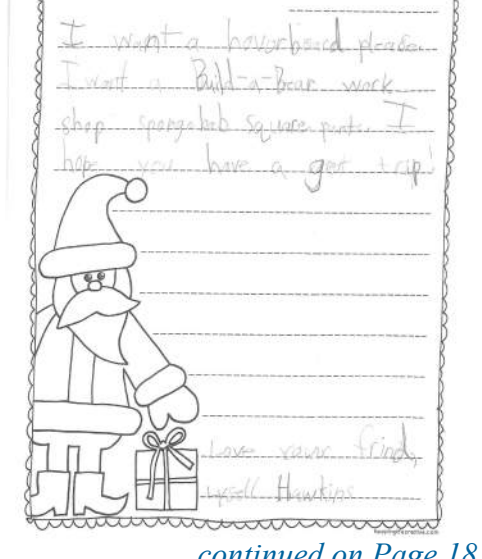 I want a hovurboard please.
I want a Build-a-Bear work
shop spongebob Squarepants. I
hope you have a gret trip!
Love your frind,
Hawkins
continued on Page 18